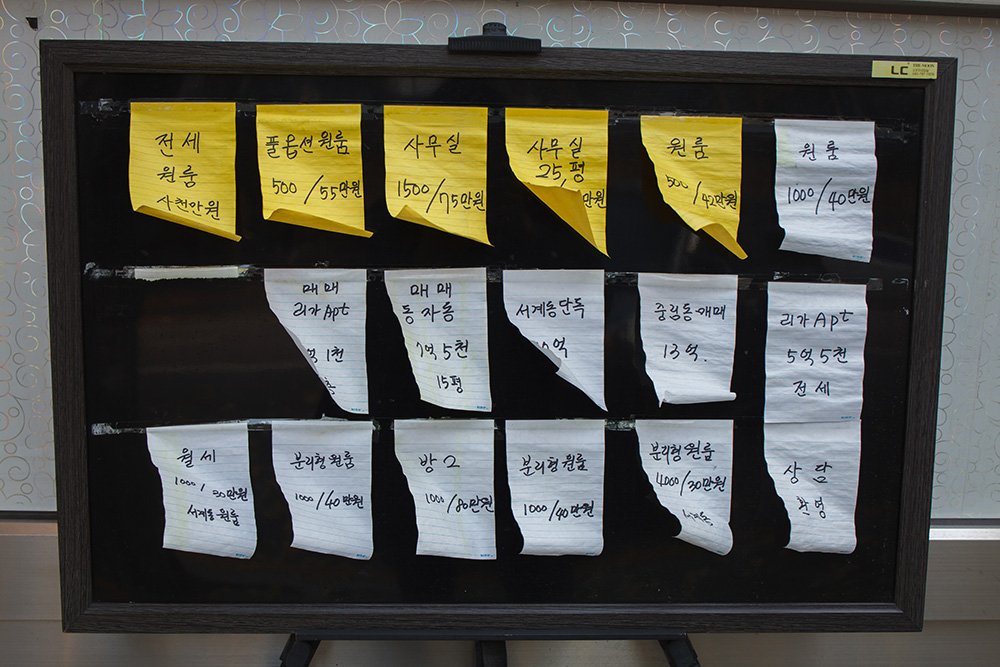 전세
원룸
사천만원
풀옵션 원룸
500/55만원
사무실
1500/75만원
사무실
25평
만원
원룸
500/42만원
원룸
1000/40만원
LC
THE MOON
매매
리가 Apt
억 1천
매매
동자동
7억 5천
15평
서계동단독
억
중림동매매
13억.
리가 Apt
5억 5천
전세
상담
환영
월세
1000/30만원
서계동 원룸
분리형 원룸
1000/40만원
방2
1000/80만원
분리형 원룸
1000/40만원
분리형 원룸
4000/30만원
서계동